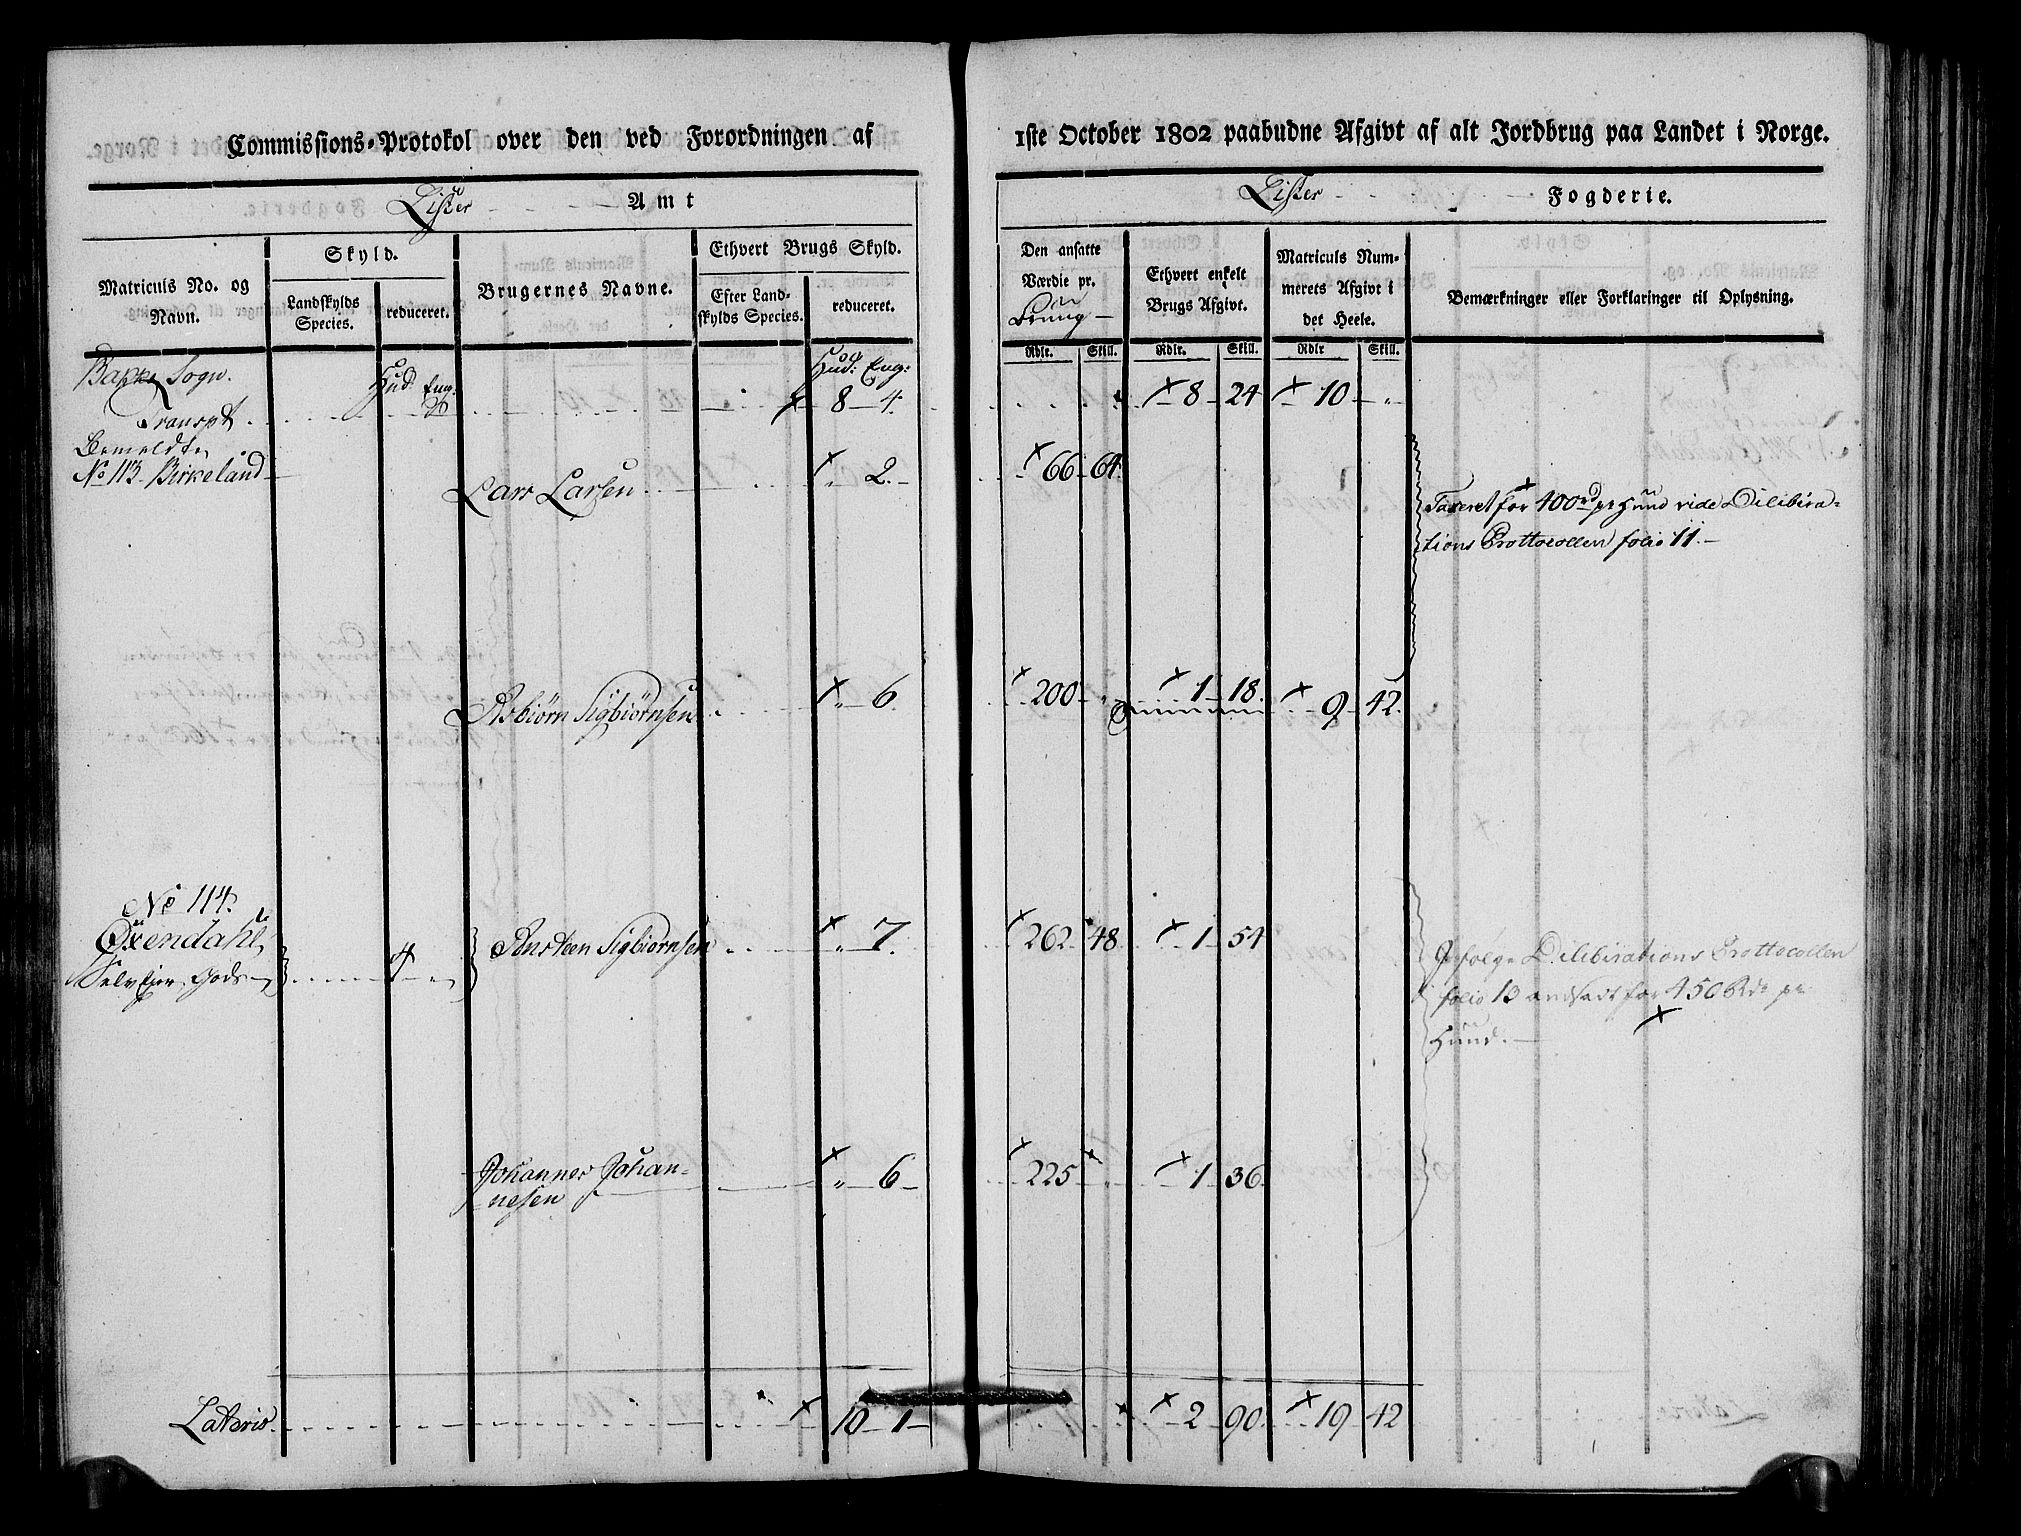 Commissions-Protokol over den ved Forordningen af
1ste October 1802 paabudne Afgivt af alt Jordbrug paa Landet i Norge.
Lister Amt
Lister Fogderie.
Matriculs No. og Navn.
Skyld.
Landskylds Species.
reduceret.
Brugernes Navne.
Ethvert Brugs Skyld.
Efter Landskylds Species.
reduceret.
Den ansatte Værdie pr.
Ethvert enkelt Brugs Afgivt.
Matriculs Nummerets Afgivt i det Heele.
Bemærkninger eller Forklaringer til Oplysning.
Rdlr. Skill. Rdlr. Skill. Rdlr Skill.
Bakke Sogn. Hud. Eng. Hud: Eng:
Transpt 8 4. 8 24 10 "
Bemeldte
No 113. Birkeland
Lars Larsen " 2. 66 64.
Taxeret for 400rd pr Hund vide Dilibira=
tions Prottocollen folio 11.
Asbiørn Sigbiørnsen " 6. 200 " 1 18. 9 42.
No 114.
Oxendahl
Selv Eier Gods 4
Tensteen Sigbiørnsen " 7. 262 48 1 54
Ifølge Dilibirations Prottocollen
folio 13 andsadt for 450 Rdr pr
Hund.
Johannes Johan-
nesen " 6 225 " 1 36.
Lateris 10 1 2 90. 19 42